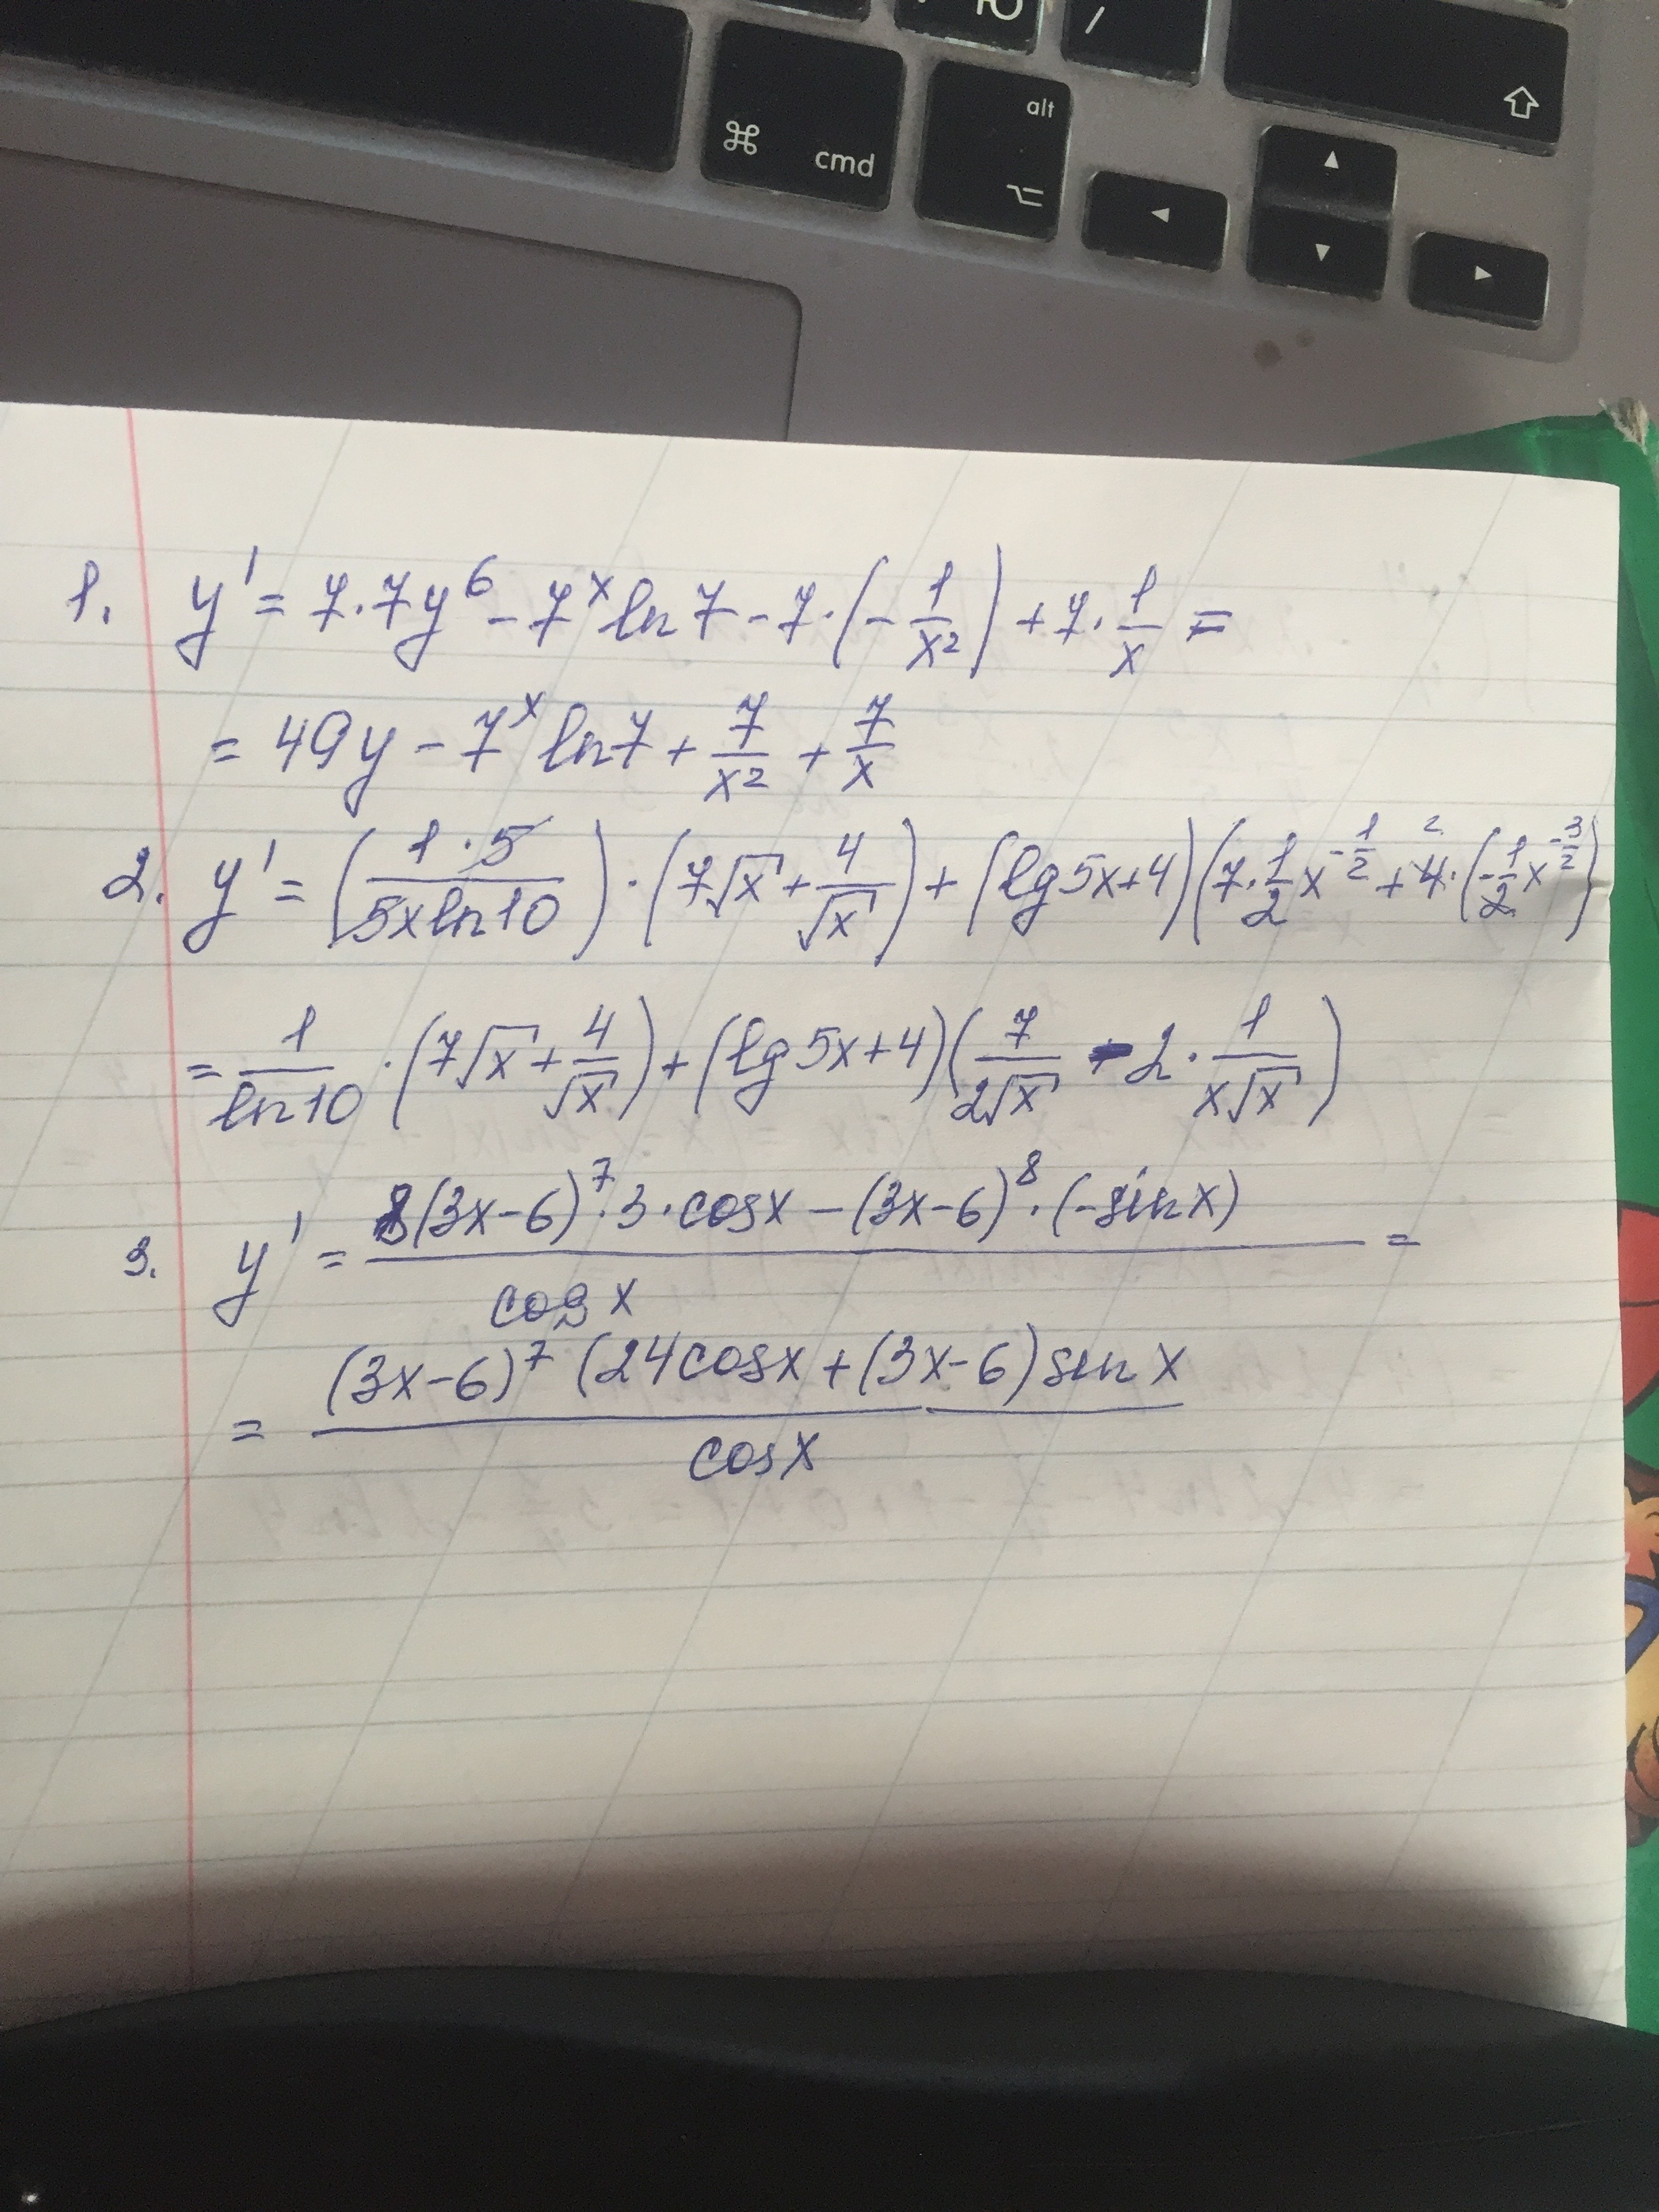 Ю /
⌘ cmd alt ⌥ ⇧
◄ ▲ ▼ ►
1. y' = 7·7y⁶ − 7ˣ ln7 − 7·(−1/x²) + 7·1/x =
= 49y − 7ˣ ln7 + 7/x² + 7/x
2. y' = (1·5/5xln10)·(7√x + 4/√x) + (lg5x+4)(7·1/2 x^(-1/2) + 4·(−1/2 x^(-3/2))
= 1/ln10 ·(7√x + 4/√x) + (lg5x+4)(7/2√x − 2·1/x√x)
3. y' = 8(3x−6)⁷·3·cosx − (3x−6)⁸·(−sinx)/cos x =
= (3x−6)⁷(24cosx + (3x−6)sinx/cosx